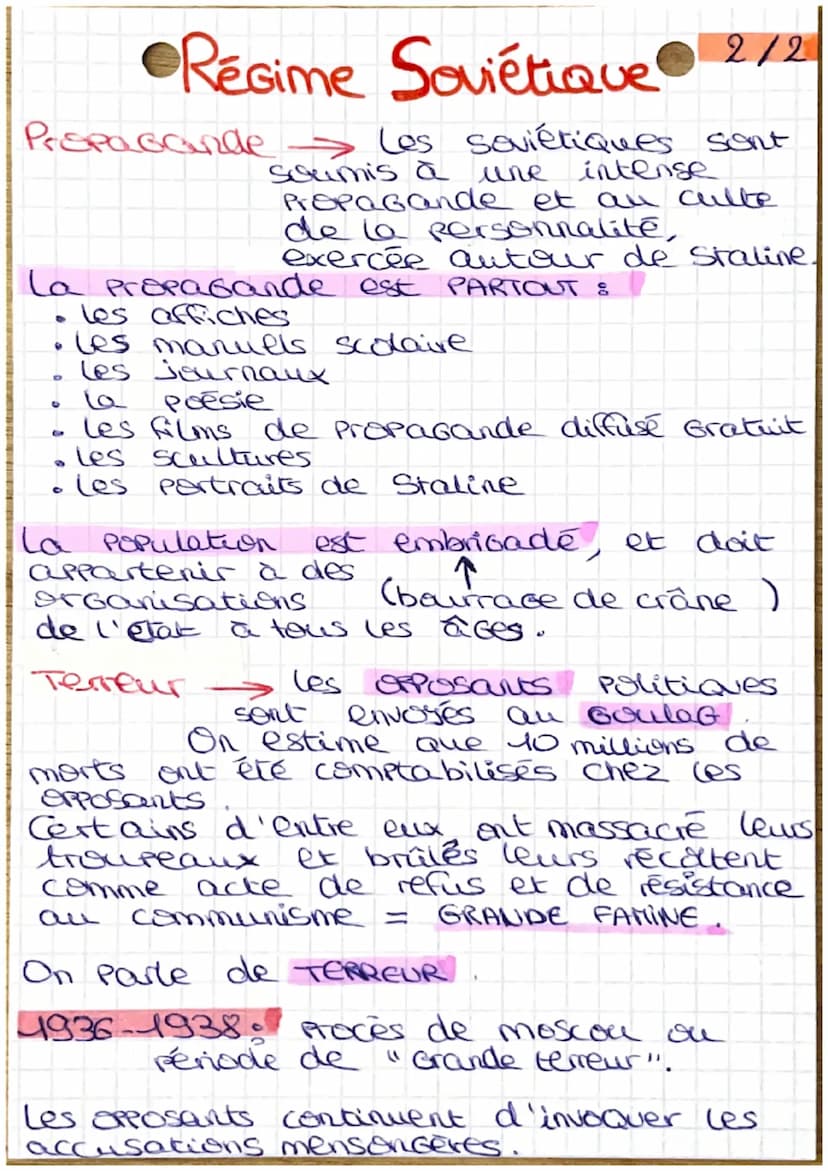 Régime Soviétique 2/2
Propagande → Les soviétiques sont
soumis à une intense
propagande et au culte
de la personnalité,
exercée autour de Staline.
La propagande est PARTOUT :
• les affiches
• les manuels scolaire
• les journaux
• la poésie
• les films de propagande diffusé gratuit
• les scultures
• les portraits de Staline
La population est embrigadé, et doit
appartenir à des ↑
organisations (bourrage de crâne)
de l'état à tous les âges.
Terreur → Les opposants politiques
sont envoyés au GOULAG.
On estime que 10 millions de
morts ont été comptabilisés chez les
opposants.
Certains d'entre eux ont massacré leurs
troupeaux et brûlés leurs récoltent
comme acte de refus et de résistance
au communisme = GRANDE FAMINE.
On parle de TERREUR.
1936-1938 : Procès de moscou ou
période de "Grande terreur".
Les opposants continuent d'invoquer les
accusations mensongères.